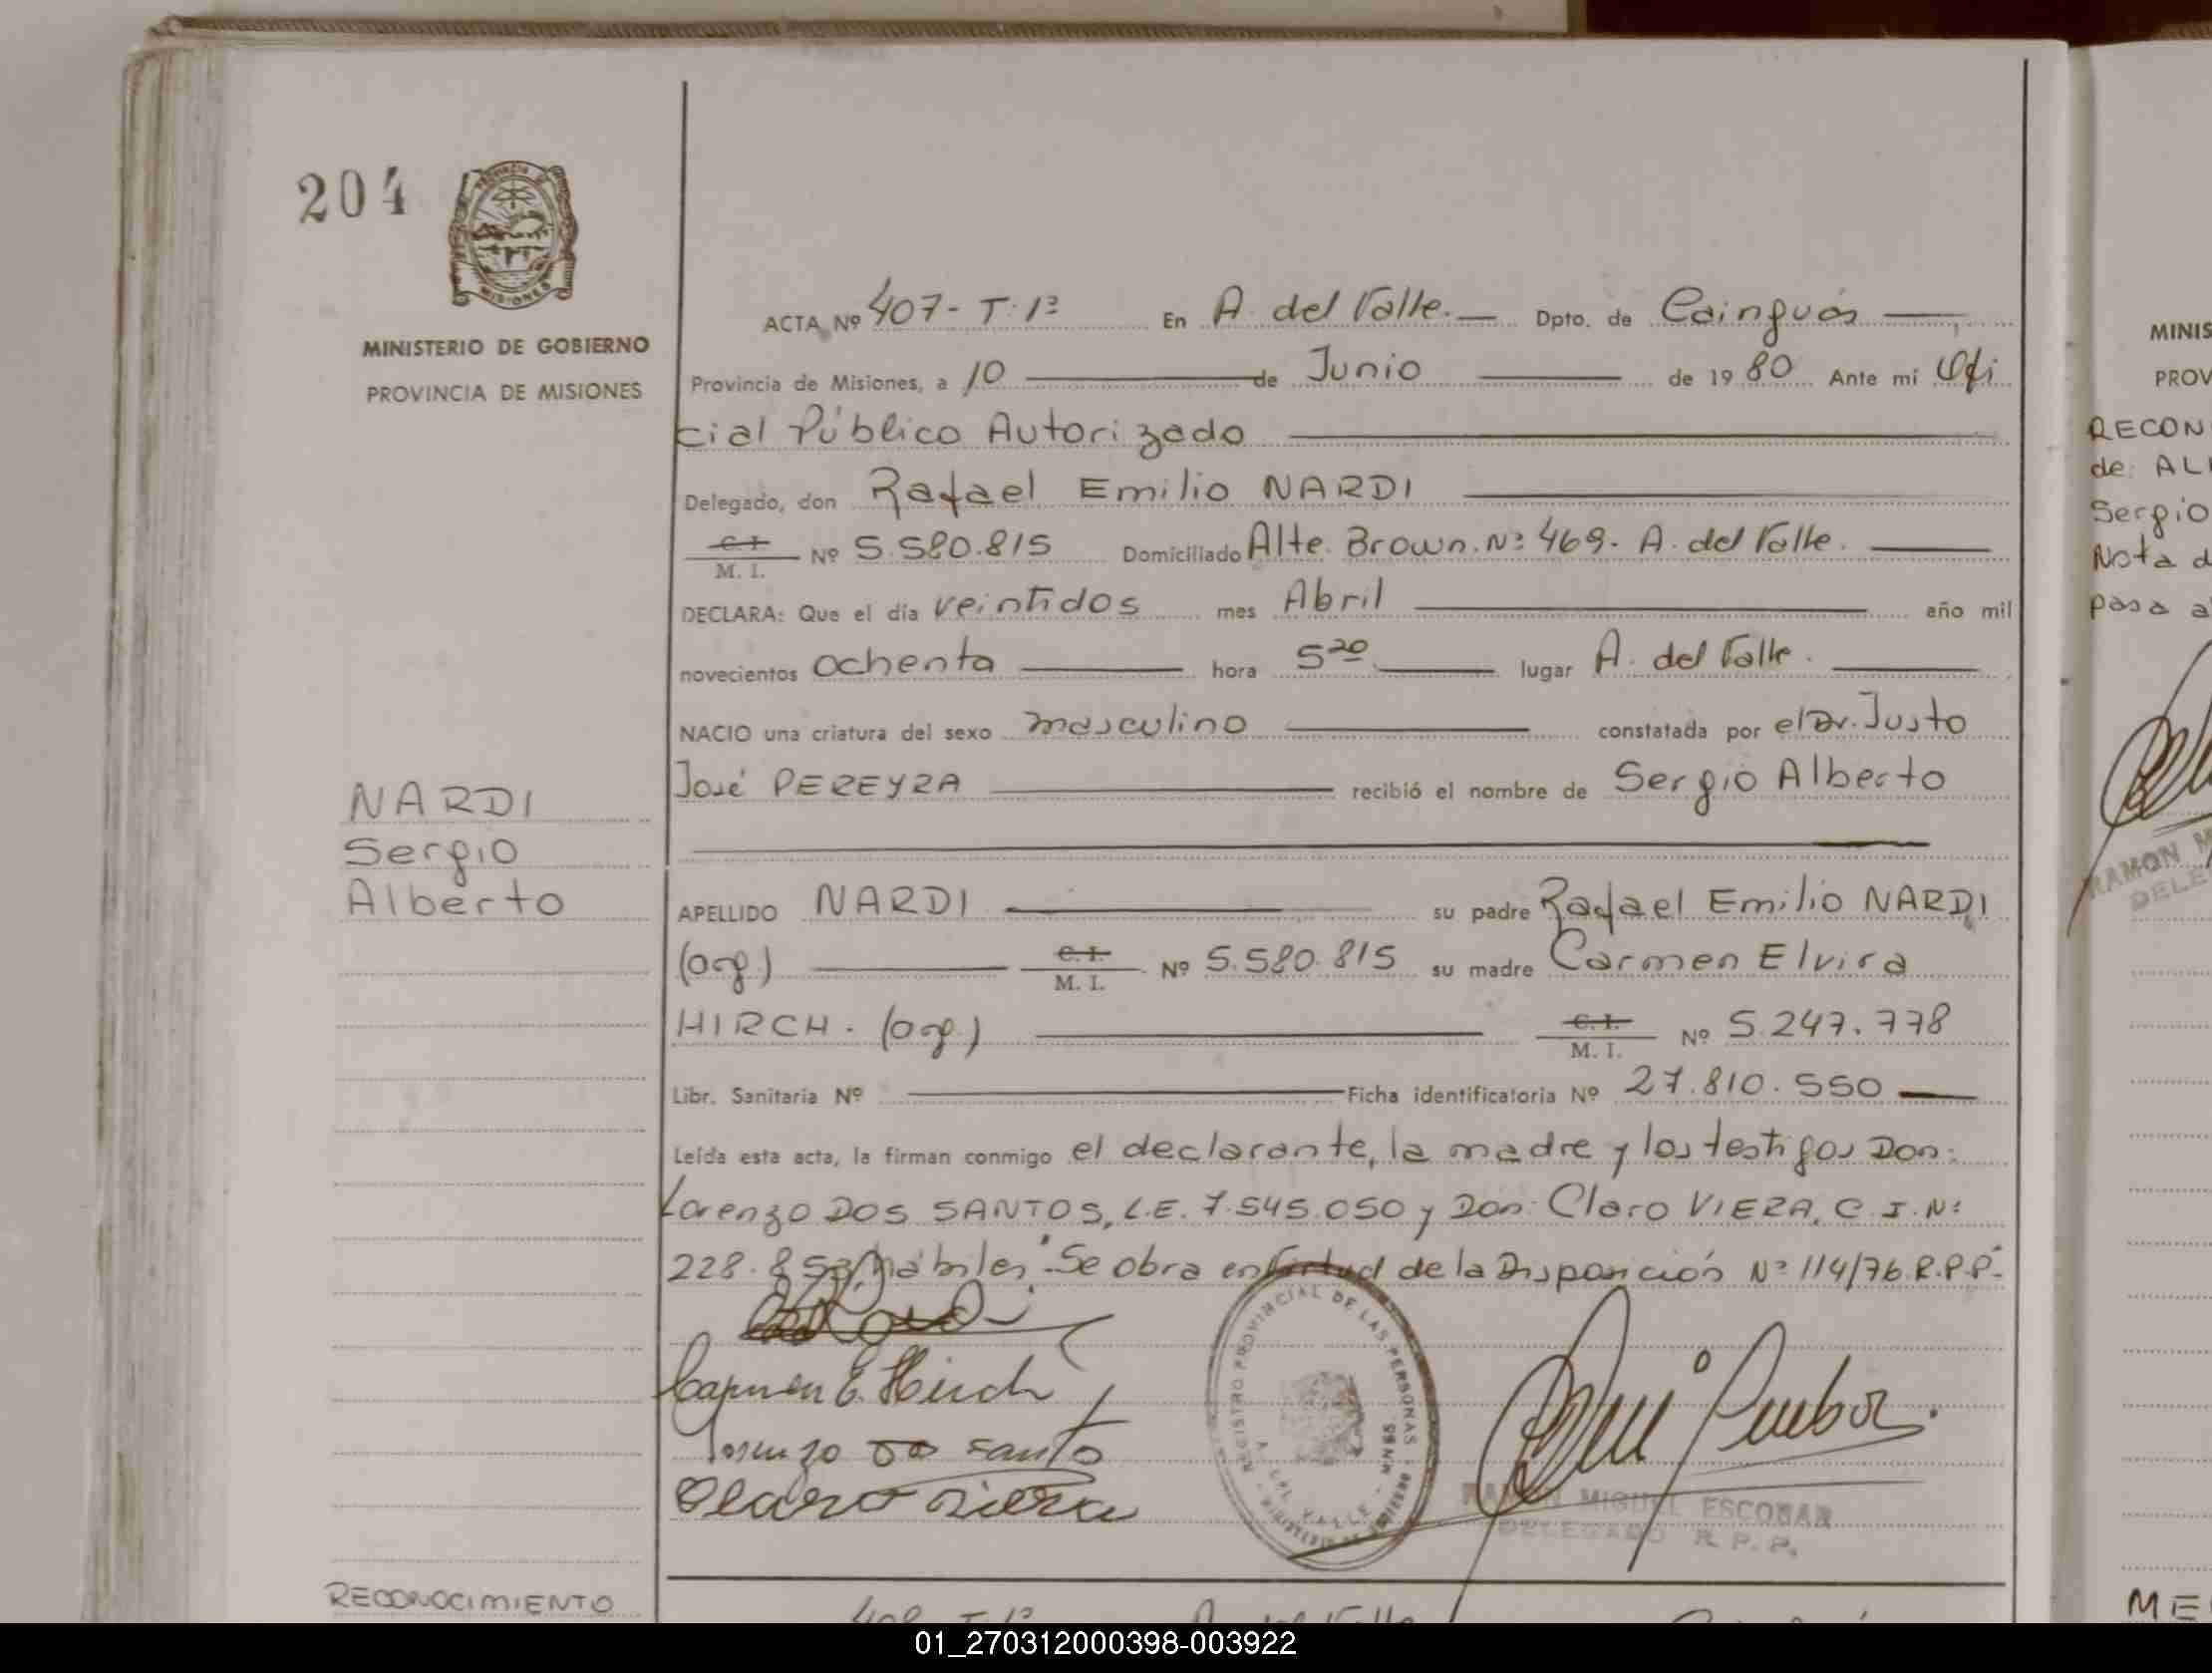 204
MISIONES
MINISTERIO DE GOBIERNO
PROVINCIA DE MISIONES
NARDI
Sergio
Alberto
RECONOCIMIENTO
ACTA Nº 407- T: 1º En A. del Valle. Dpto. de Cainguás
Provincia de Misiones, a 10 de Junio de 1980 Ante mí Ofi
cial Público Autorizado
Delegado, don Rafael Emilio NARDI
C. I. M. I. Nº 5.580.815 Domiciliado Alte. Brown. Nº 469- A. del Valle.
DECLARA: Que el día veintidos mes Abril año mil
novecientos ochenta hora 5 20 lugar A. del Valle.
NACIO una criatura del sexo masculino constatada por el Dr. Justo
José PEREYRA recibió el nombre de Sergio Alberto
APELLIDO NARDI su padre Rafael Emilio NARDI
(arg.) C. I. M. I. Nº 5.580.815 su madre Carmen Elvira
HIRCH. (arg.) C. I. M. I. Nº 5.247.778
Libr. Sanitaria Nº Ficha identificatoria Nº 27.810.550
Leída esta acta, la firman conmigo el declarante, la madre y los testigos Don:
Lorenzo DOS SANTOS, L.E. 7.545.050 y Don: Claro VIERA, C.I.Nº
228.853, hábiles". Se obra en virtud de la Disposición Nº 114/76 R.P.P.-
Carmen E. Hirch
Lorenzo do santo
Claro viera
REGISTRO PROVINCIAL DE LAS PERSONAS
A. DEL VALLE - MNES
RAMON MIGUEL ESCOBAR
DELEGADO R. P. P.
408 - T: 1º A. del Valle
MINIS
PROV
RECON
de: AL
Sergio
Nota d
pasa a
RAMON M
DELE
ME
01_270312000398-003922